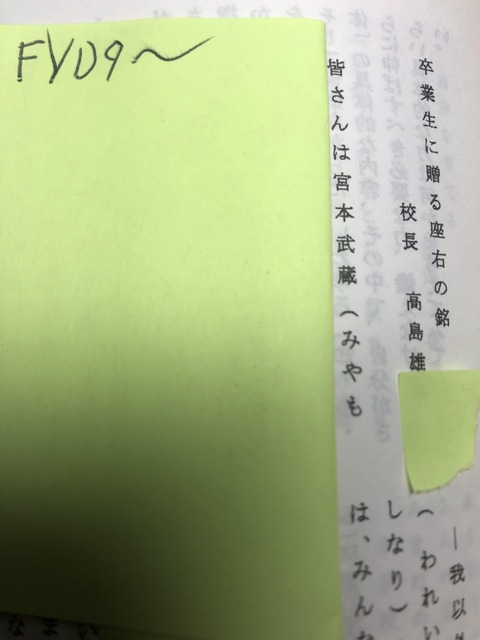 FYD9～
卒業生に贈る座右の銘
校長 高島雄
皆さんは宮本武蔵(みやも
―我以
(われい
しなり)
は、みんな